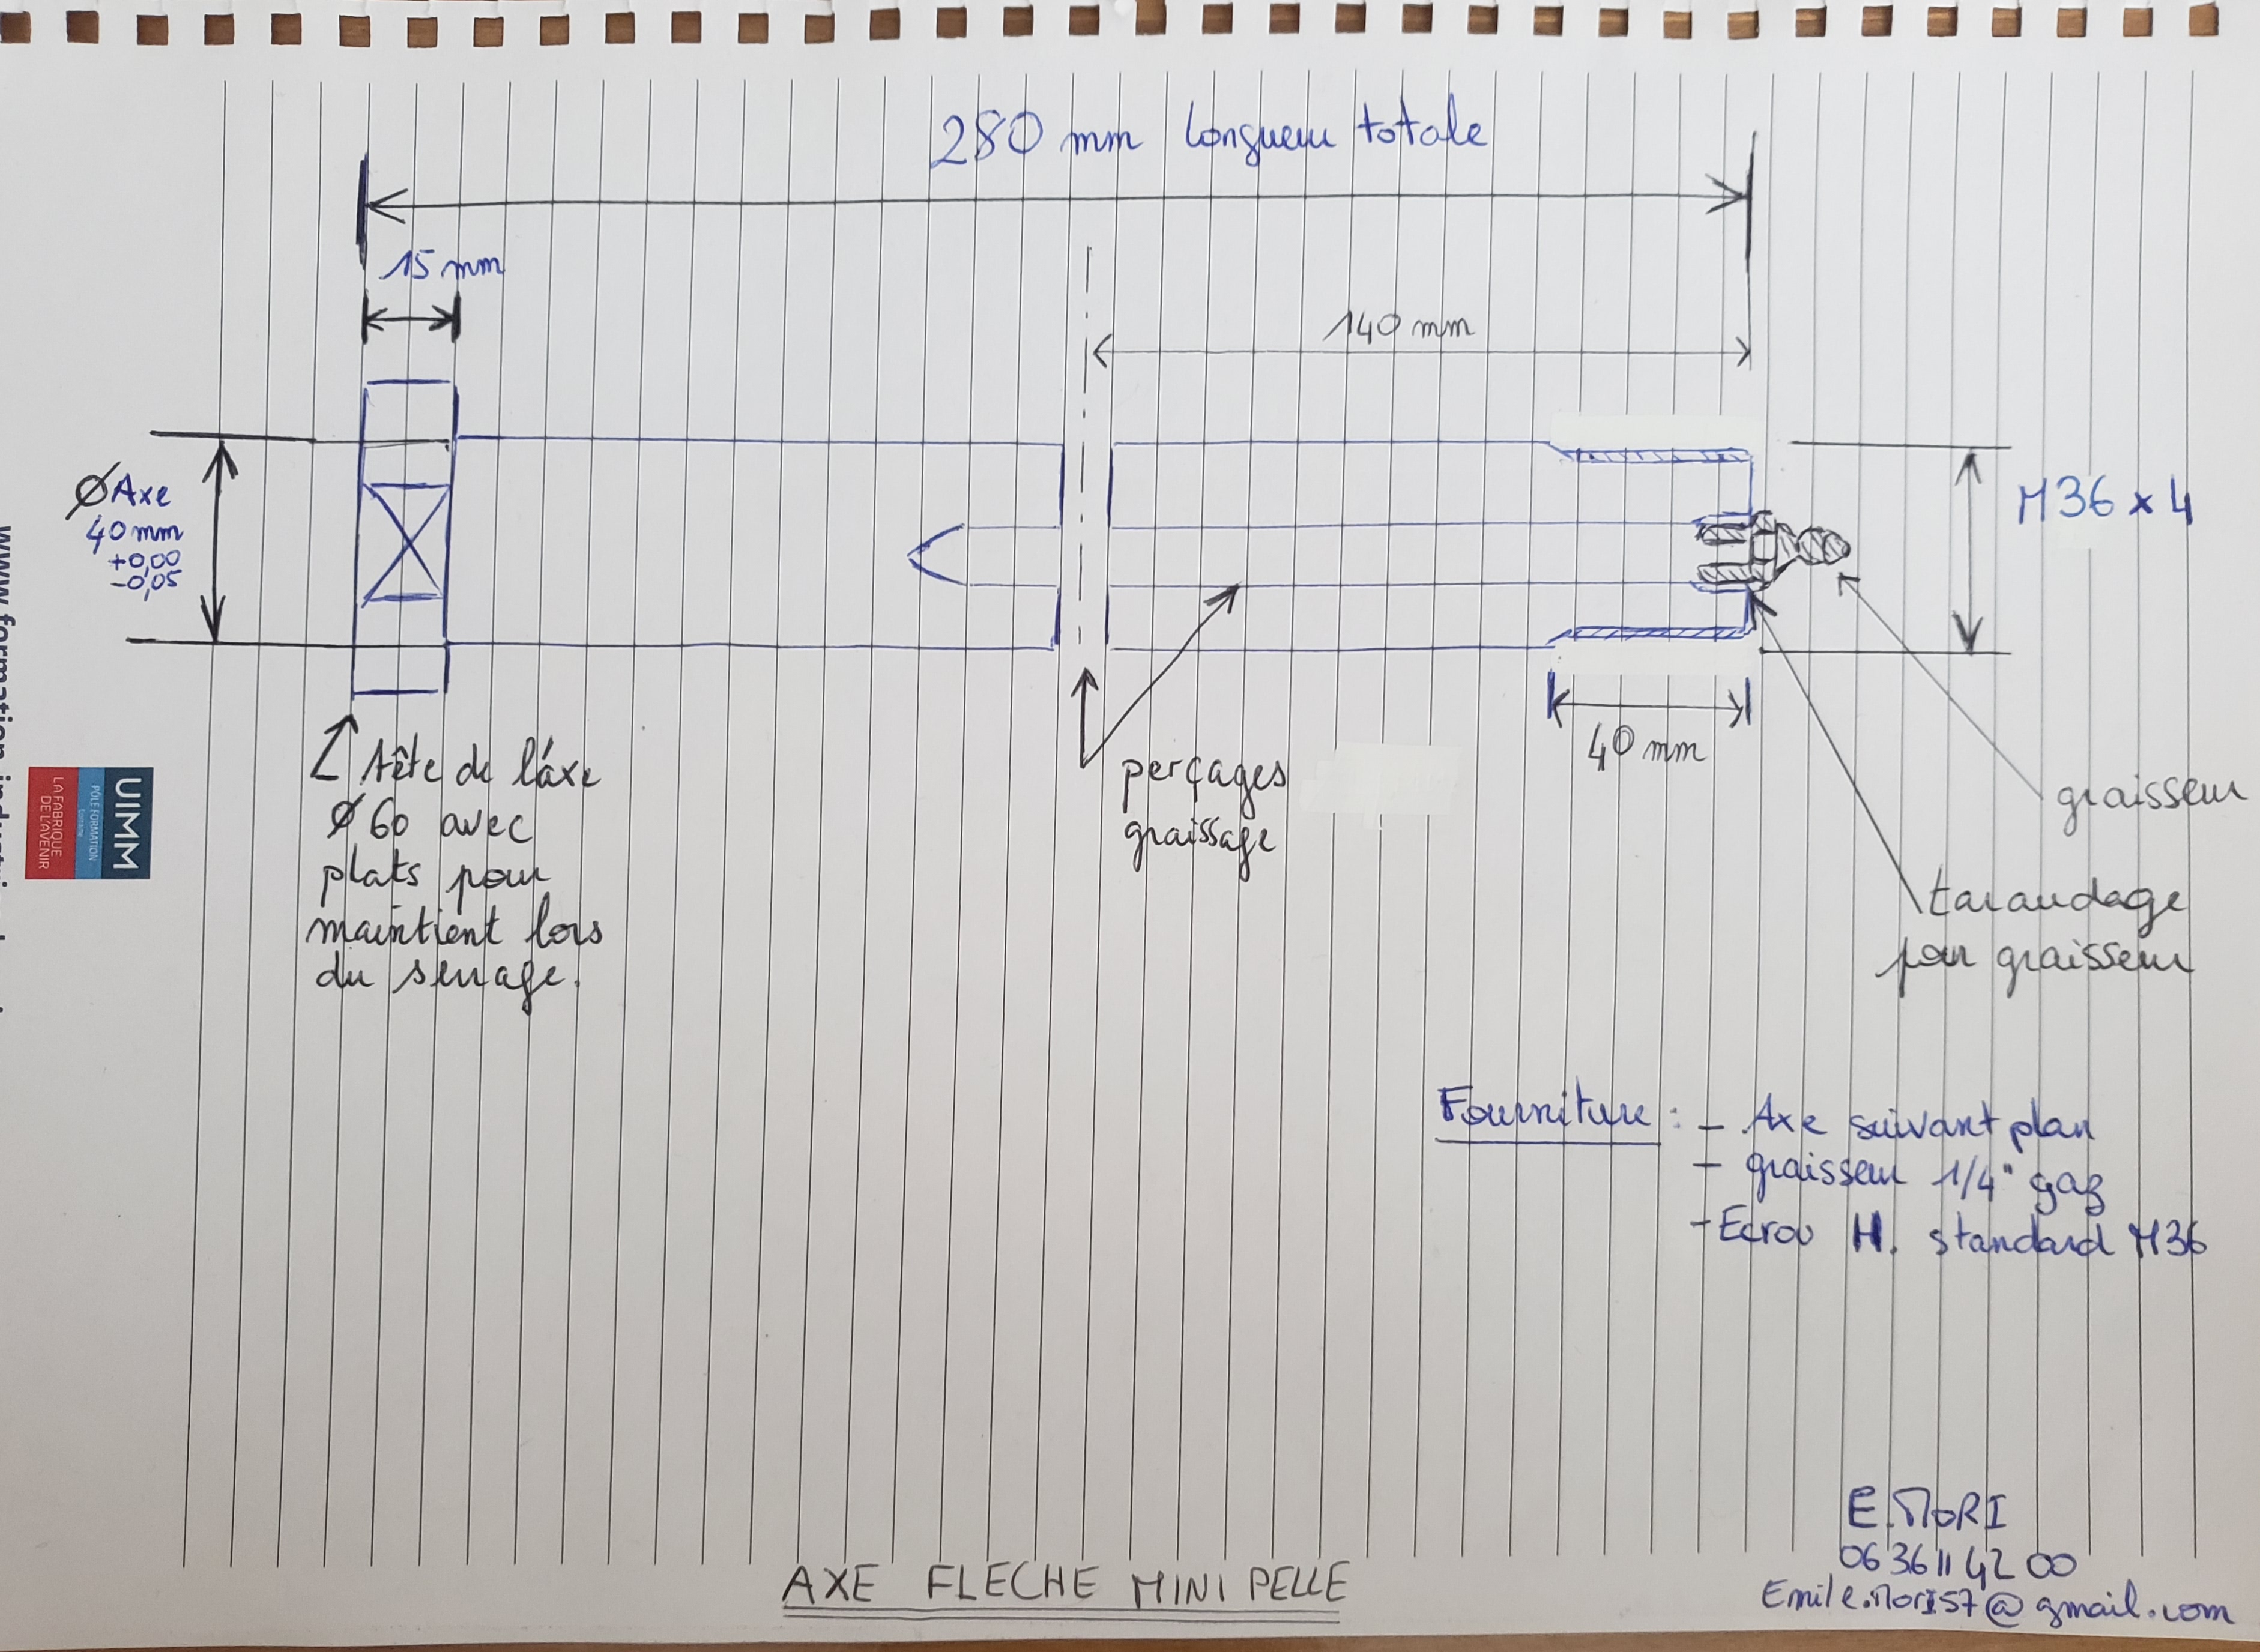 280 mm longueur totale
15 mm
140 mm
Ø Axe
40 mm
+0,00
-0,05
M36 x 4
40 mm
tête de l'axe
Ø 60 avec
plats pour
maintient lors
du serrage.
perçages
graissage
graisseur
taraudage
pour graisseur
UIMM
PÔLE FORMATION
LA FABRIQUE
DE L'AVENIR
Fourniture : - Axe suivant plan
- graisseur 1/4" gaz
- Ecrou H. standard M36
E. MORI
06 36 11 42 00
Emile.MORI57@gmail.com
AXE FLECHE MINI PELLE